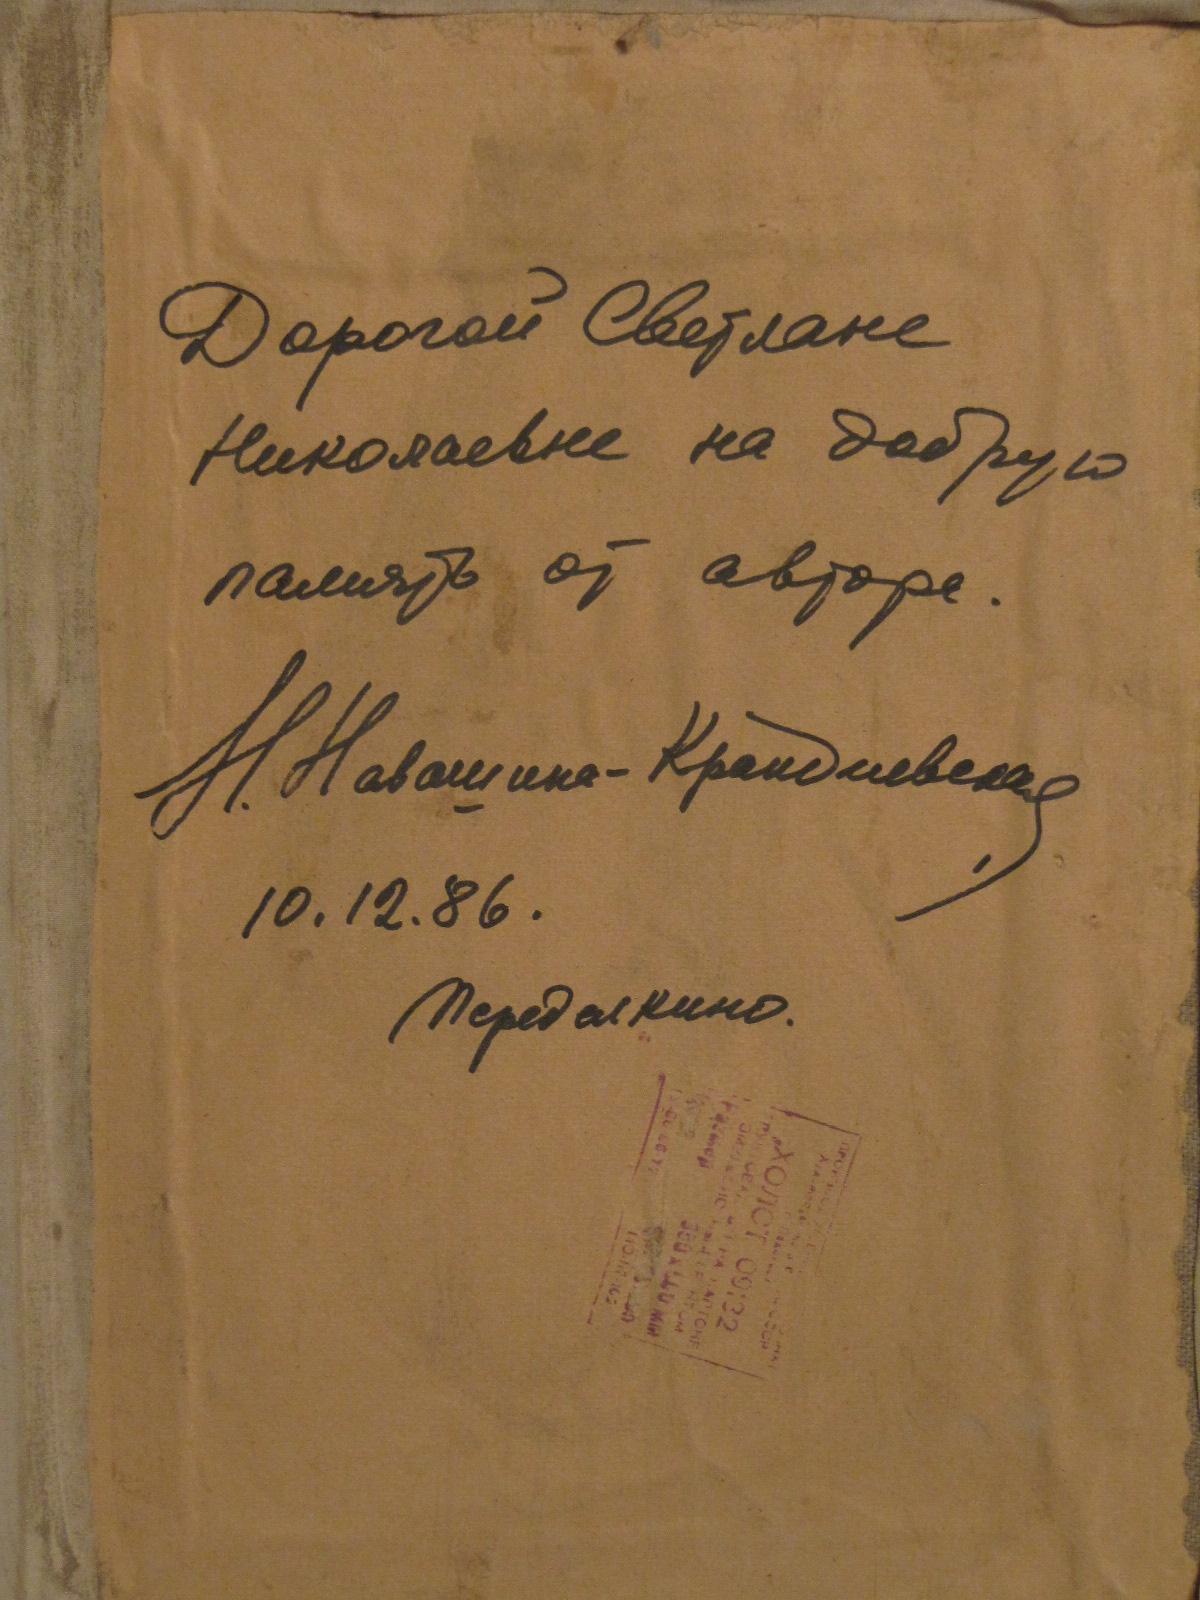 Дорогой Светлане
Николаевне на добрую
память от автора.
Н. Навашина-Крандиевская
10.12.86.
Переделкино.
ХОЛСТ